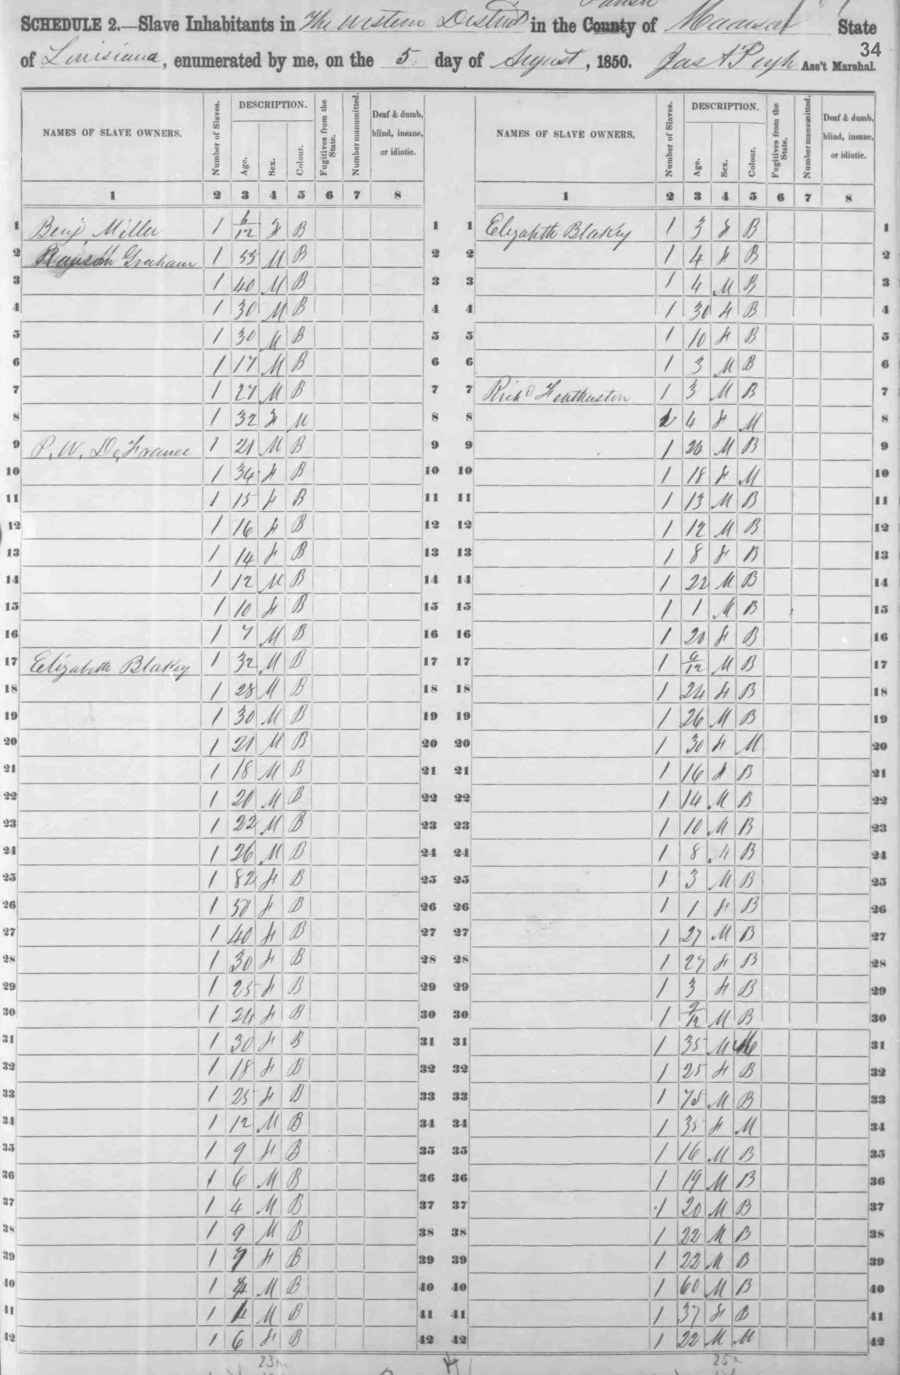 SCHEDULE 2.—Slave Inhabitants in The Western District in the County Parish of State
of Louisiana, enumerated by me, on the 5 day of August, 1850. Jas A Pugh Ass't Marshal.
34
NAMES OF SLAVE OWNERS. Number of Slaves. DESCRIPTION. Age. Sex. Colour. Fugitives from the State. Number manumitted. Deaf & dumb, blind, insane, or idiotic. NAMES OF SLAVE OWNERS. Number of Slaves. DESCRIPTION. Age. Sex. Colour. Fugitives from the State. Number manumitted. Deaf & dumb, blind, insane, or idiotic.
1 2 3 4 5 6 7 8 1 2 3 4 5 6 7 8
1 Benj Miller 1 /12 F B 1 1 Elizabeth Blakey 1 3 F B 1
2 Graham 1 55 M B 2 2 1 4 F B 2
3 1 40 M B 3 3 1 4 M B 3
4 1 30 M B 4 4 1 30 F B 4
5 1 30 M B 5 5 1 10 F B 5
6 1 17 M B 6 6 1 3 M B 6
7 1 27 M B 7 7 Richd 1 3 M B 7
8 1 32 F M 8 8 4 F M 8
9 P. W. DeFrance 1 21 M B 9 9 1 20 M B 9
10 1 34 F B 10 10 1 18 F M 10
11 1 15 F B 11 11 1 13 M B 11
12 1 16 F B 12 12 1 12 M B 12
13 1 14 F B 13 13 1 8 F B 13
14 1 12 M B 14 14 1 22 M B 14
15 1 10 F B 15 15 1 1 M B 15
16 1 7 M B 16 16 1 20 F B 16
17 Elizabeth Blakey 1 32 M B 17 17 1 /12 M B 17
18 1 28 M B 18 18 1 24 F B 18
19 1 30 M B 19 19 1 26 M B 19
20 1 21 M B 20 20 1 30 F M 20
21 1 18 M B 21 21 1 16 F B 21
22 1 20 M B 22 22 1 14 M B 22
23 1 22 M B 23 23 1 10 M B 23
24 1 26 M B 24 24 1 8 B 24
25 1 82 F B 25 25 1 3 M B 25
26 1 50 F B 26 26 1 1 F B 26
27 1 40 F B 27 27 1 27 M B 27
28 1 30 F B 28 28 1 27 F B 28
29 1 25 F B 29 29 1 3 F B 29
30 1 24 F B 30 30 1 9/12 M B 30
31 1 30 F B 31 31 1 35 M 31
32 1 18 F B 32 32 1 25 F B 32
33 1 25 F B 33 33 1 75 M B 33
34 1 12 M B 34 34 1 35 F M 34
35 1 9 F B 35 35 1 16 M B 35
36 1 6 M B 36 36 1 19 M B 36
37 1 4 M B 37 37 1 20 M B 37
38 1 9 M B 38 38 1 22 M B 38
39 1 7 F B 39 39 1 22 M B 39
40 1 4 M B 40 40 1 60 M B 40
41 1 M B 41 41 1 37 F B 41
42 1 6 F B 42 42 1 22 M M 42
23m 25m